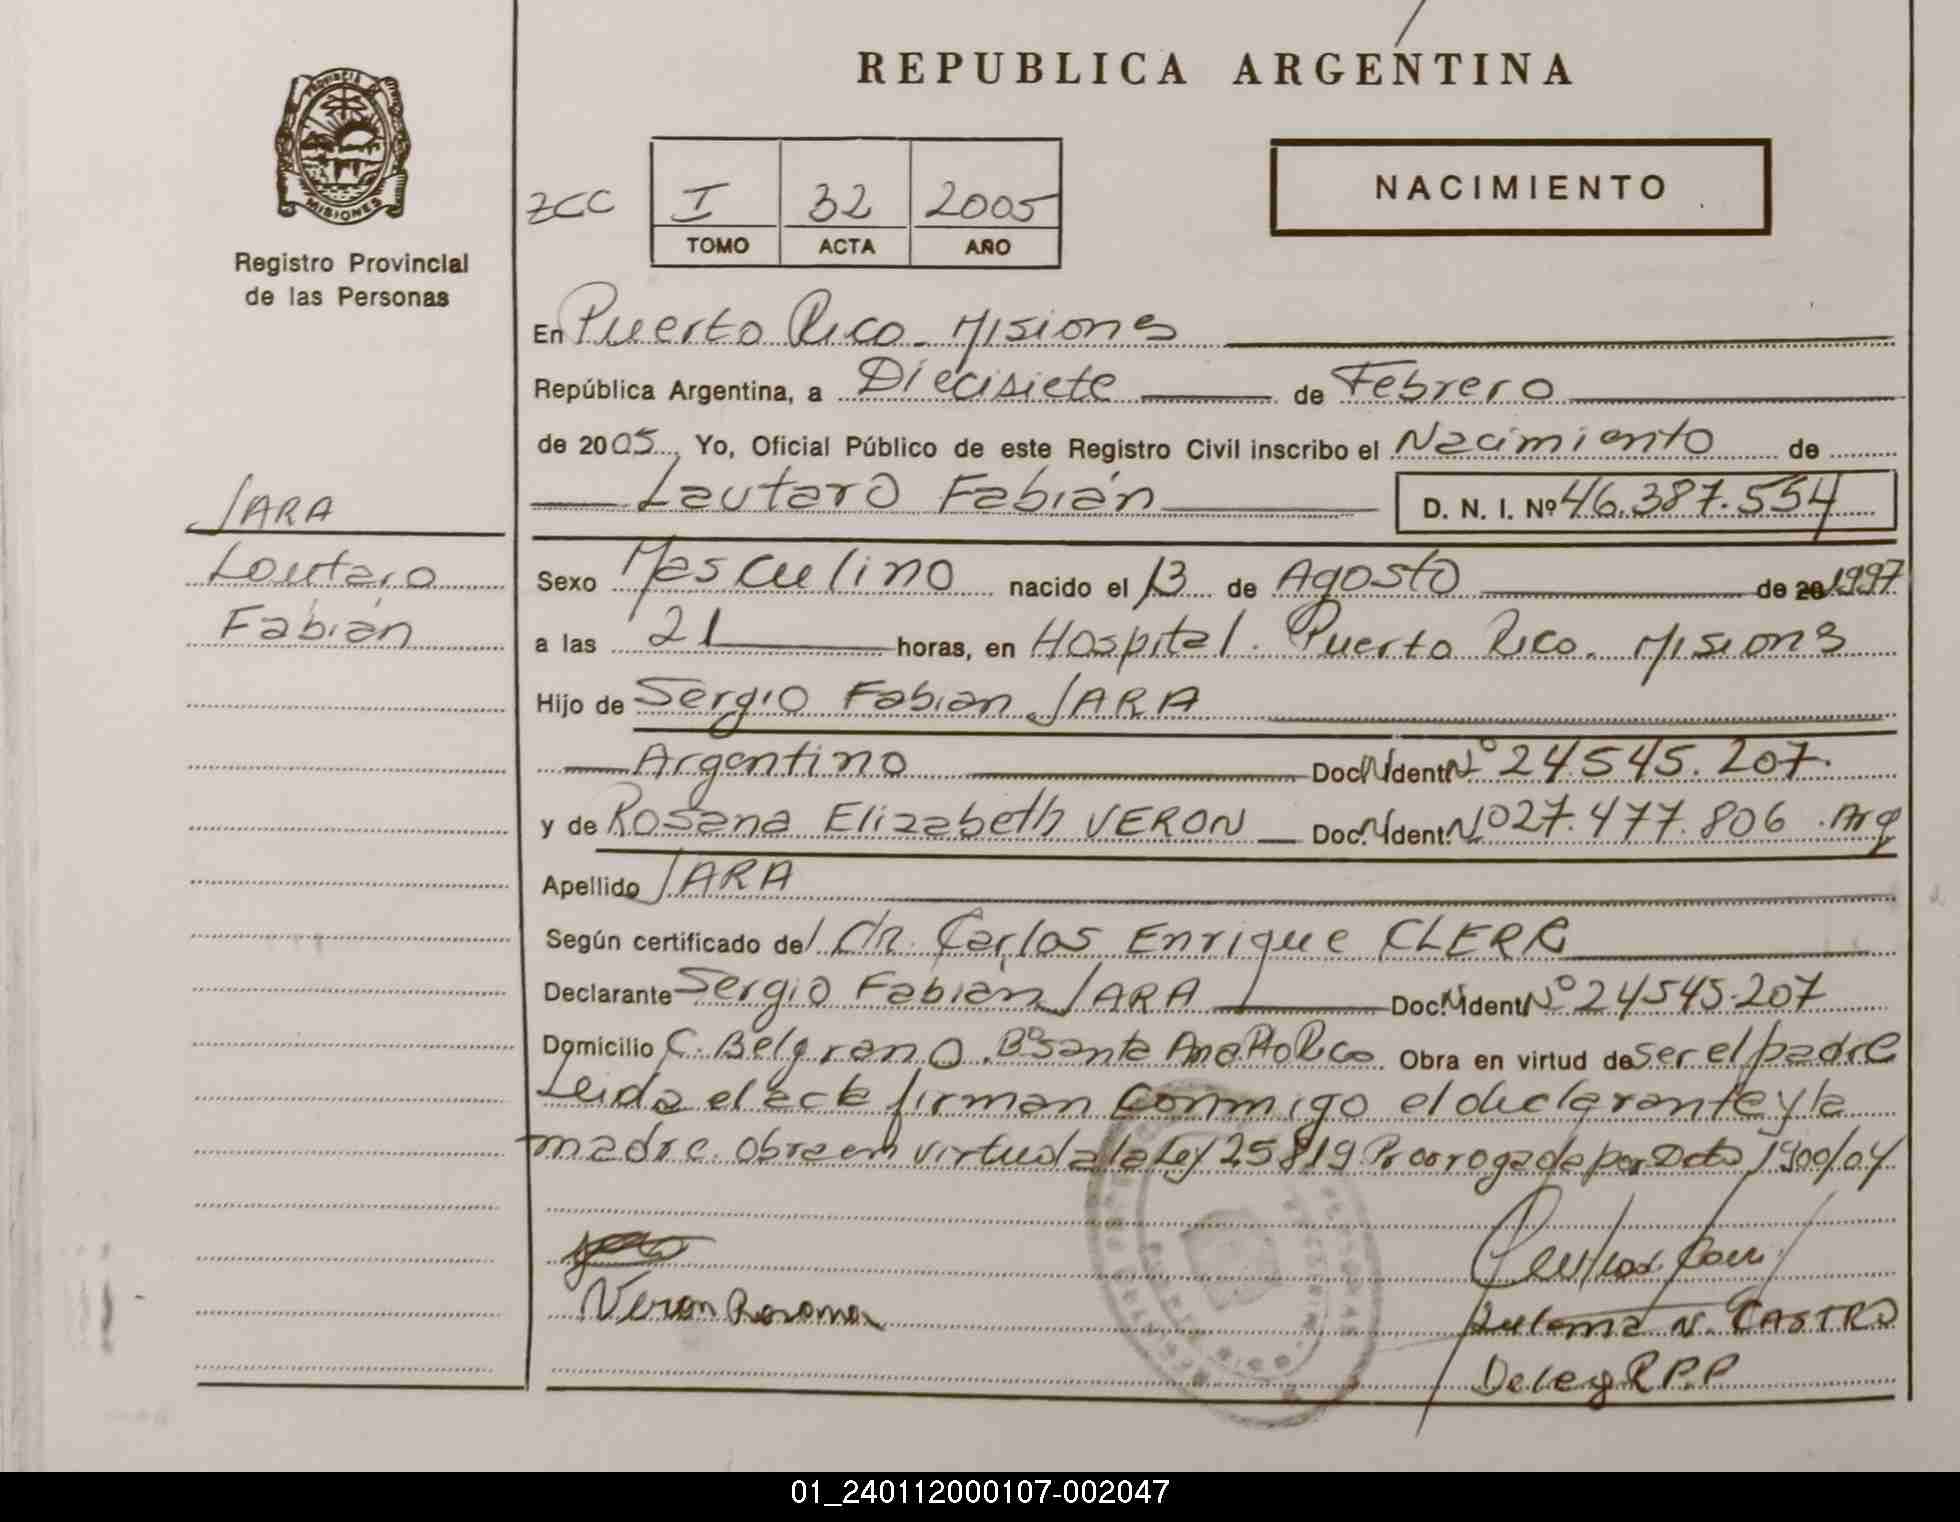 REPUBLICA ARGENTINA
PROVINCIA DE
MISIONES
Registro Provincial
de las Personas
NACIMIENTO
ZCC I 32 2005
TOMO ACTA AÑO
En Puerto Rico. Misiones
República Argentina, a Diecisiete de Febrero
de 2005, Yo, Oficial Público de este Registro Civil inscribo el Nacimiento de
Lautaro Fabián D. N. I. Nº 46.387.554
JARA
Lautaro
Fabián
Sexo Masculino nacido el 13 de Agosto de 20 1997
a las 21 horas, en Hospital. Puerto Rico. Misions
Hijo de Sergio Fabian JARA
Argentino Doc. Ident. Nº 24.545.207.
y de Rosana Elizabeth VERON Doc. Ident. Nº 27.477.806 . Arg
Apellido JARA
Según certificado del Dr. Carlos Enrique CLERC
Declarante Sergio Fabián JARA Doc. Ident. Nº 24545.207
Domicilio C. Belgrano. Bº Santa Ana Pto Rico. Obra en virtud de ser el padre
Leida el acta firman conmigo el declarante y la
madre. obra en virtud a la Ley 25819 Prorrogada por Dcto 1900/04
Veron Rosana
N. CASTRO
Deleg R.P.P
01_240112000107-002047